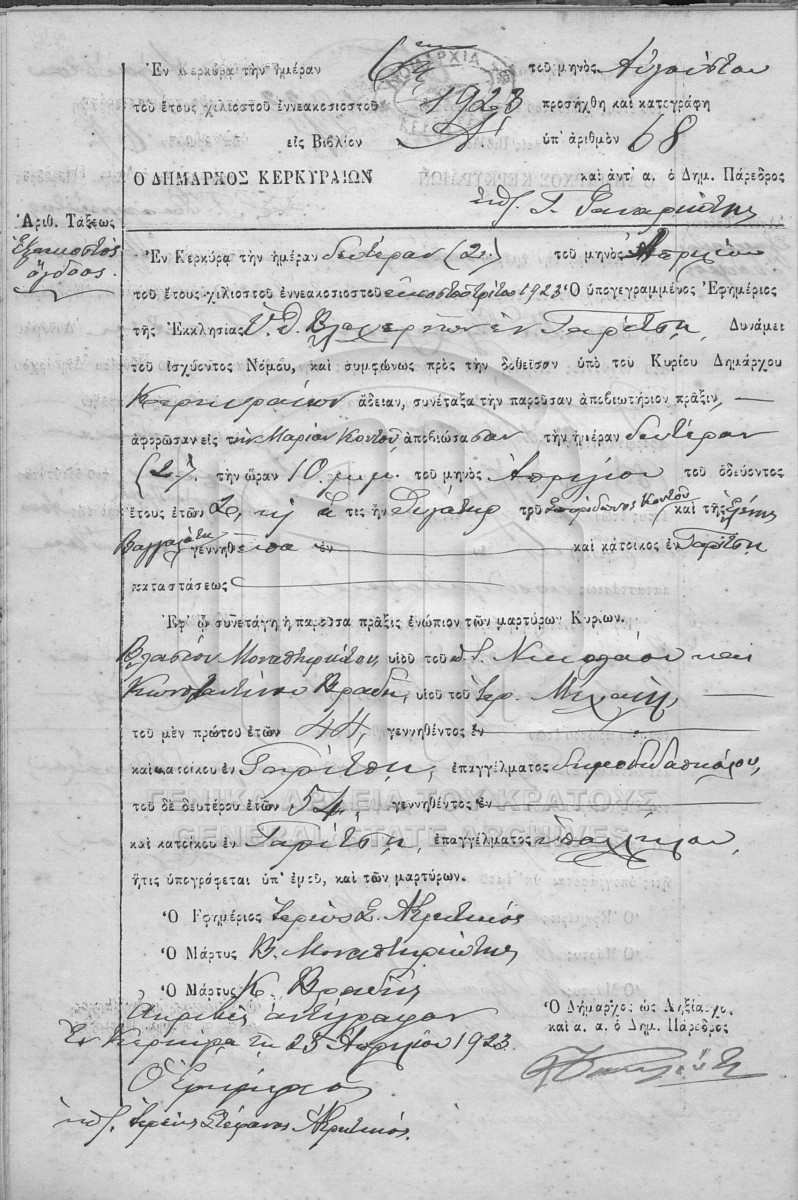 Ἐν Κερκύρᾳ τὴν ἡμέραν 6ῃ τοῦ μηνὸς Αὐγούστου
τοῦ ἔτους χιλιοστοῦ ἐννεακοσιοστοῦ 1923 προσήχθη καὶ κατεγράφη
εἰς Βιβλίον Α' ὑπ' ἀριθμὸν 68
Ο ΔΗΜΑΡΧΟΣ ΚΕΡΚΥΡΑΙΩΝ καὶ ἀντ' α. ὁ Δημ. Πάρεδρος
ὑπ. Γ.
Ἀριθ. Τάξεως
Ἑξηκοστὸς
ὄγδοος.
Ἐν Κερκύρᾳ τὴν ἡμέραν δευτέραν (2) τοῦ μηνὸς Ἀπριλίου
τοῦ ἔτους χιλιοστοῦ ἐννεακοσιοστοῦ εἰκοστοῦ τρίτου 1923 Ὁ ὑπογεγραμμένος Ἐφημέριος
τῆς Ἐκκλησίας Ὑ. Θ. Βλαχερνῶν ἐν Γαρίτσῃ, Δυνάμει
τοῦ ἰσχύοντος Νόμου, καὶ συμφώνως πρὸς τὴν δοθεῖσαν ὑπὸ τοῦ Κυρίου Δημάρχου
Κερκυραίων ἄδειαν, συνέταξα τὴν παροῦσαν ἀποβιωτήριον πρᾶξιν,
ἀφορῶσαν εἰς τὴν Μαρίαν Κοντοῦ, ἀποβιώσασαν τὴν ἡμέραν δευτέραν
(2), τὴν ὥραν 10 μ.μ. τοῦ μηνὸς Ἀπριλίου τοῦ ὁδεύοντος
ἔτους ἐτῶν τις ἦν θυγάτηρ τοῦ Σπυρίδωνος Κοντοῦ καὶ τῆς Εἰρήνης
γεννηθεῖσα ἐν καὶ κάτοικος ἐν Γαρίτσῃ
καταστάσεως
Ἐφ' ᾧ συνετάγη ἡ παροῦσα πρᾶξις ἐνώπιον τῶν μαρτύρων Κυρίων.
Βλασίου Μοναστηριώτου, υἱοῦ τοῦ π. Νικολάου καὶ
Κωνσταντίνου Βραδῆ, υἱοῦ τοῦ Μιχαὴλ,
τοῦ μὲν πρώτου ἐτῶν 44, γεννηθέντος ἐν
καὶ κατοίκου ἐν Γαρίτσῃ, ἐπαγγέλματος δημοδιδασκάλου,
τοῦ δὲ δευτέρου ἐτῶν 54, γεννηθέντος ἐν
ΓΕΝΙΚΑ ΑΡΧΕΙΑ ΤΟΥ ΚΡΑΤΟΥΣ
GENERAL STATE ARCHIVES
καὶ κατοίκου ἐν Γαρίτσῃ, ἐπαγγέλματος ὑπαλλήλου,
ἥτις ὑπογράφεται ὑπ' ἐμοῦ, καὶ τῶν μαρτύρων.
Ὁ Ἐφημέριος Ἱερεὺς Σ. Ἀκριτικός
Ὁ Μάρτυς Β. Μοναστηριώτης
Ὁ Μάρτυς Κ. Βραδῆς
Ἀκριβὲς ἀντίγραφον
Ἐν Κερκύρᾳ τῇ 23 Ἀπριλίου 1923.
Ὁ Ἐφημέριος
ὑπ. Ἱερεὺς Στέφανος Ἀκριτικός.
Ὁ Δήμαρχος ὡς Ληξίαρχος
καὶ α. α. ὁ Δημ. Πάρεδρος